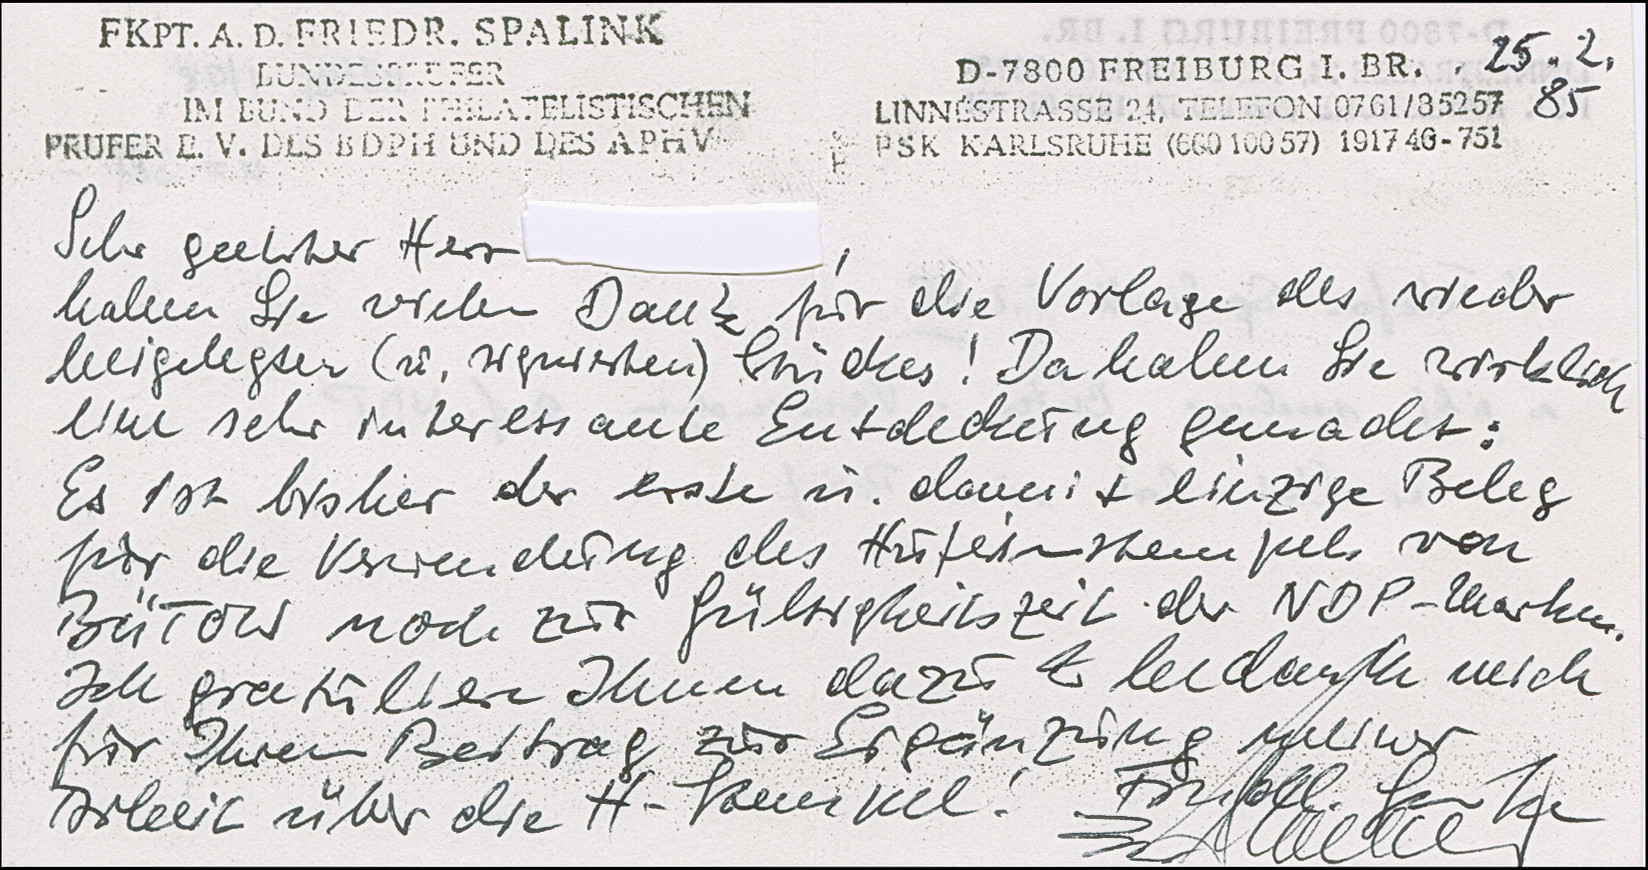 FKPT. A. D. FRIEDR. SPALINK
BUNDESPRÜFER
IM BUND DER PHILATELISTISCHEN
PRÜFER E. V. DES BDPH UND DES APHV
D-7800 FREIBURG I. BR. . 25. 2.
LINNÉSTRASSE 24, TELEFON 0761/85257 85
PSK KARLSRUHE (660 100 57) 1917 46-751
Sehr geehrter Herr ,
haben Sie vielen Dank für die Vorlage des wieder
beigelegten (u. signierten) Stückes! Da haben Sie wirklich
eine sehr interessante Entdeckung gemacht:
Es ist bisher der erste u. damit einzige Beleg
für die Verwendung des Hufeisenstempels von
BüTOW noch zur Gültigkeitszeit der NDP-Marken.
Ich gratuliere Ihnen dazu & bedanke mich
für Ihren Beitrag zur Ergänzung meiner
Arbeit über die H-Stempel!